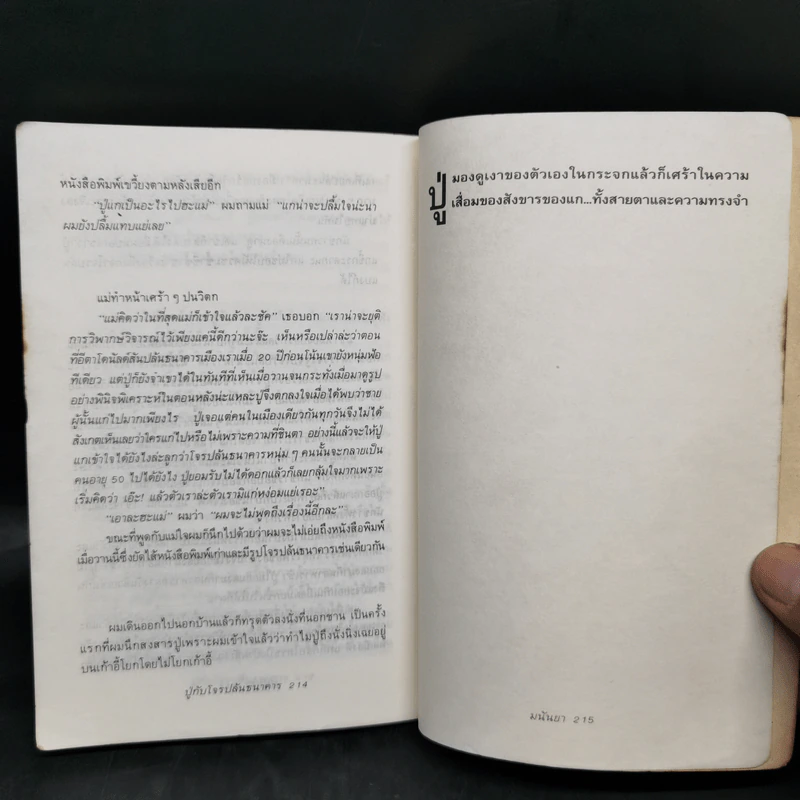 หนังสือพิมพ์เขวี้ยงตามหลังเสียอีก
"ปู่แกเป็นอะไรไปฮะแม่" ผมถามแม่ "แกน่าจะปลื้มใจน่ะนา
ผมยังปลื้มแทบแย่เลย"
แม่ทำหน้าเศร้า ๆ ปนวิตก
"แม่คิดว่าในที่สุดแม่ก็เข้าใจแล้วละซัค" เธอบอก "เราน่าจะยุติ
การวิพากษ์วิจารณ์ไว้เพียงแค่นี้ดีกว่านะจ๊ะ เห็นหรือเปล่าล่ะว่าตอน
ที่อีตาโดนัลด์สันปล้นธนาคารเมืองเราเมื่อ 20 ปีก่อนโน้นเขายังหนุ่มฟ้อ
ทีเดียว แต่ปู่ก็ยังจำเขาได้ในทันทีที่เห็นเมื่อวานจนกระทั่งเมื่อมาดูรูป
อย่างพินิจพิเคราะห์ในตอนหลังน่ะแหละปู่จึงตกลงใจเมื่อได้พบว่าชาย
ผู้นั้นแก่ไปมากเพียงไร ปู่เจอแต่คนในเมืองเดียวกันทุกวันจึงไม่ได้
สังเกตเห็นเลยว่าใครแก่ไปหรือไม่เพราะความที่ชินตา อย่างนี้แล้วจะให้ปู่
แกเข้าใจได้ยังไงล่ะลูกว่าโจรปล้นธนาคารหนุ่ม ๆ คนนั้นจะกลายเป็น
คนอายุ 50 ไปได้ยังไง ปู่ยอมรับไม่ได้ดอกแล้วก็เลยกลุ้มใจมากเพราะ
เริ่มคิดว่า เอ๊ะ! แล้วตัวเราล่ะตัวเรามิแก่หง่อมแย่เรอะ"
"เอาละฮะแม่" ผมว่า "ผมจะไม่พูดถึงเรื่องนี้อีกละ"
ขณะที่พูดกับแม่ใจผมก็นึกไปด้วยว่าผมจะไม่เอ่ยถึงหนังสือพิมพ์
เมื่อวานนี้ซึ่งยัดไส้หนังสือพิมพ์เก่าและมีรูปโจรปล้นธนาคารเช่นเดียวกัน
ผมเดินออกไปนอกบ้านแล้วก็ทรุดตัวลงนั่งที่นอกชาน เป็นครั้ง
แรกที่ผมนึกสงสารปู่เพราะผมเข้าใจแล้วว่าทำไมปู่ถึงนั่งนิ่งเฉยอยู่
บนเก้าอี้โยกโดยไม่โยกเก้าอี้
ปู่กับโจรปล้นธนาคาร 214
ปู่มองดูเงาของตัวเองในกระจกแล้วก็เศร้าในความ
เสื่อมของสังขารของแก...ทั้งสายตาและความทรงจำ
มนันยา 215